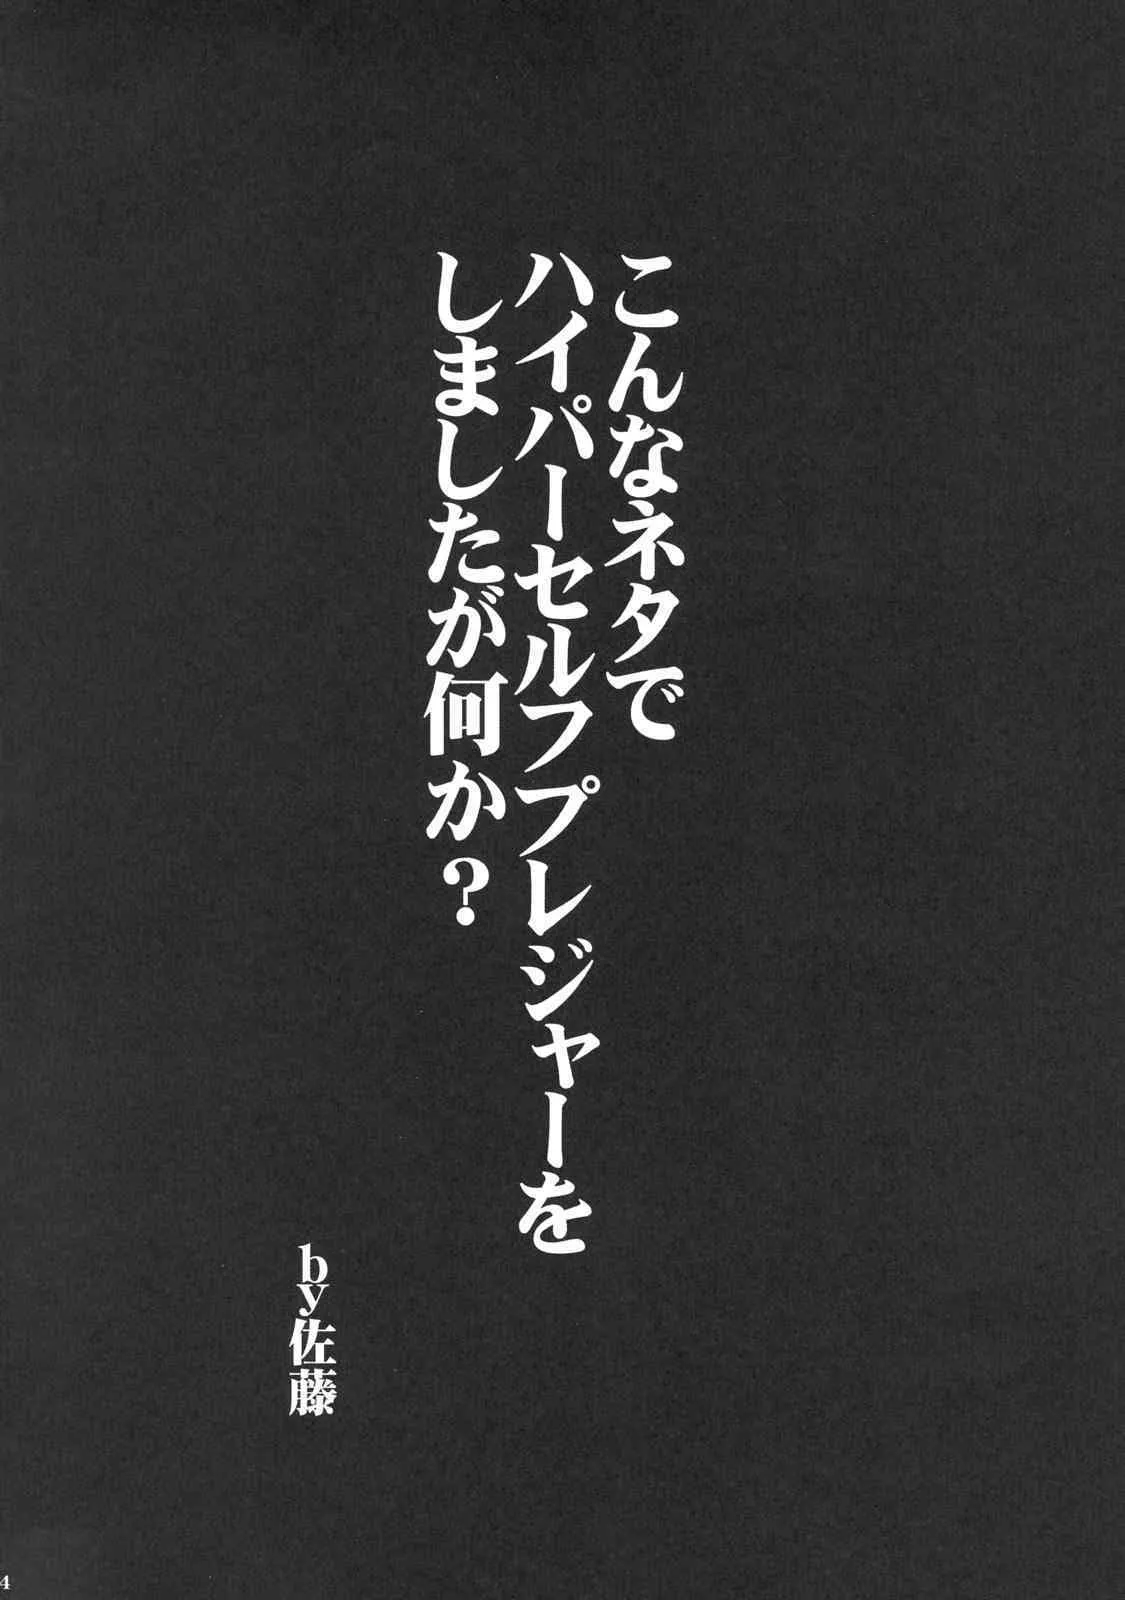 こんなネタで
ハイパーセルフプレジャーを
しましたが何か？
by佐藤
4